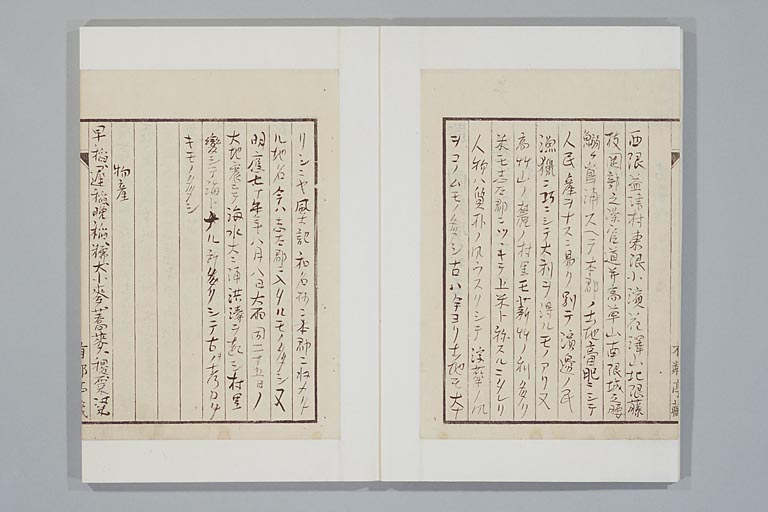 西限益津村東限小濱花澤山北限藤
枝岡部之深官道并高草山南限城之腰
鰯ヶ嶌浦スヘテ本郡ノ土地膏肥ニシテ
人民産ヲナスニ易ク別テ濱邊ノ民
漁獵ニ巧ニシテ大利ヲ得ルモノアリ又
高竹山ノ麓ノ村里モ薪竹ノ利多ク
米モ志太郡ニツヽキテ上米ト称スルニタレリ
人物ハ質朴ノ風ウスクシテ浮華ノ風
ヲコノムモノ多シ古ハ今ヨリ土地モ大
リシニヤ風土記和名抄ニ本郡ニ收メタ
ル地名今ハ志太郡ニ入タルモノ多シ又
明應七年八月八日大雨同二十五日ノ
大地震ニテ海水大ニ涌洪濤ヲ起シ村里
變シテ海トナル所多クシテ古ノ考カタ
キモノ多シ
物産
早稲遅稲晩稲糯大小麥蕎麥稷粟粱